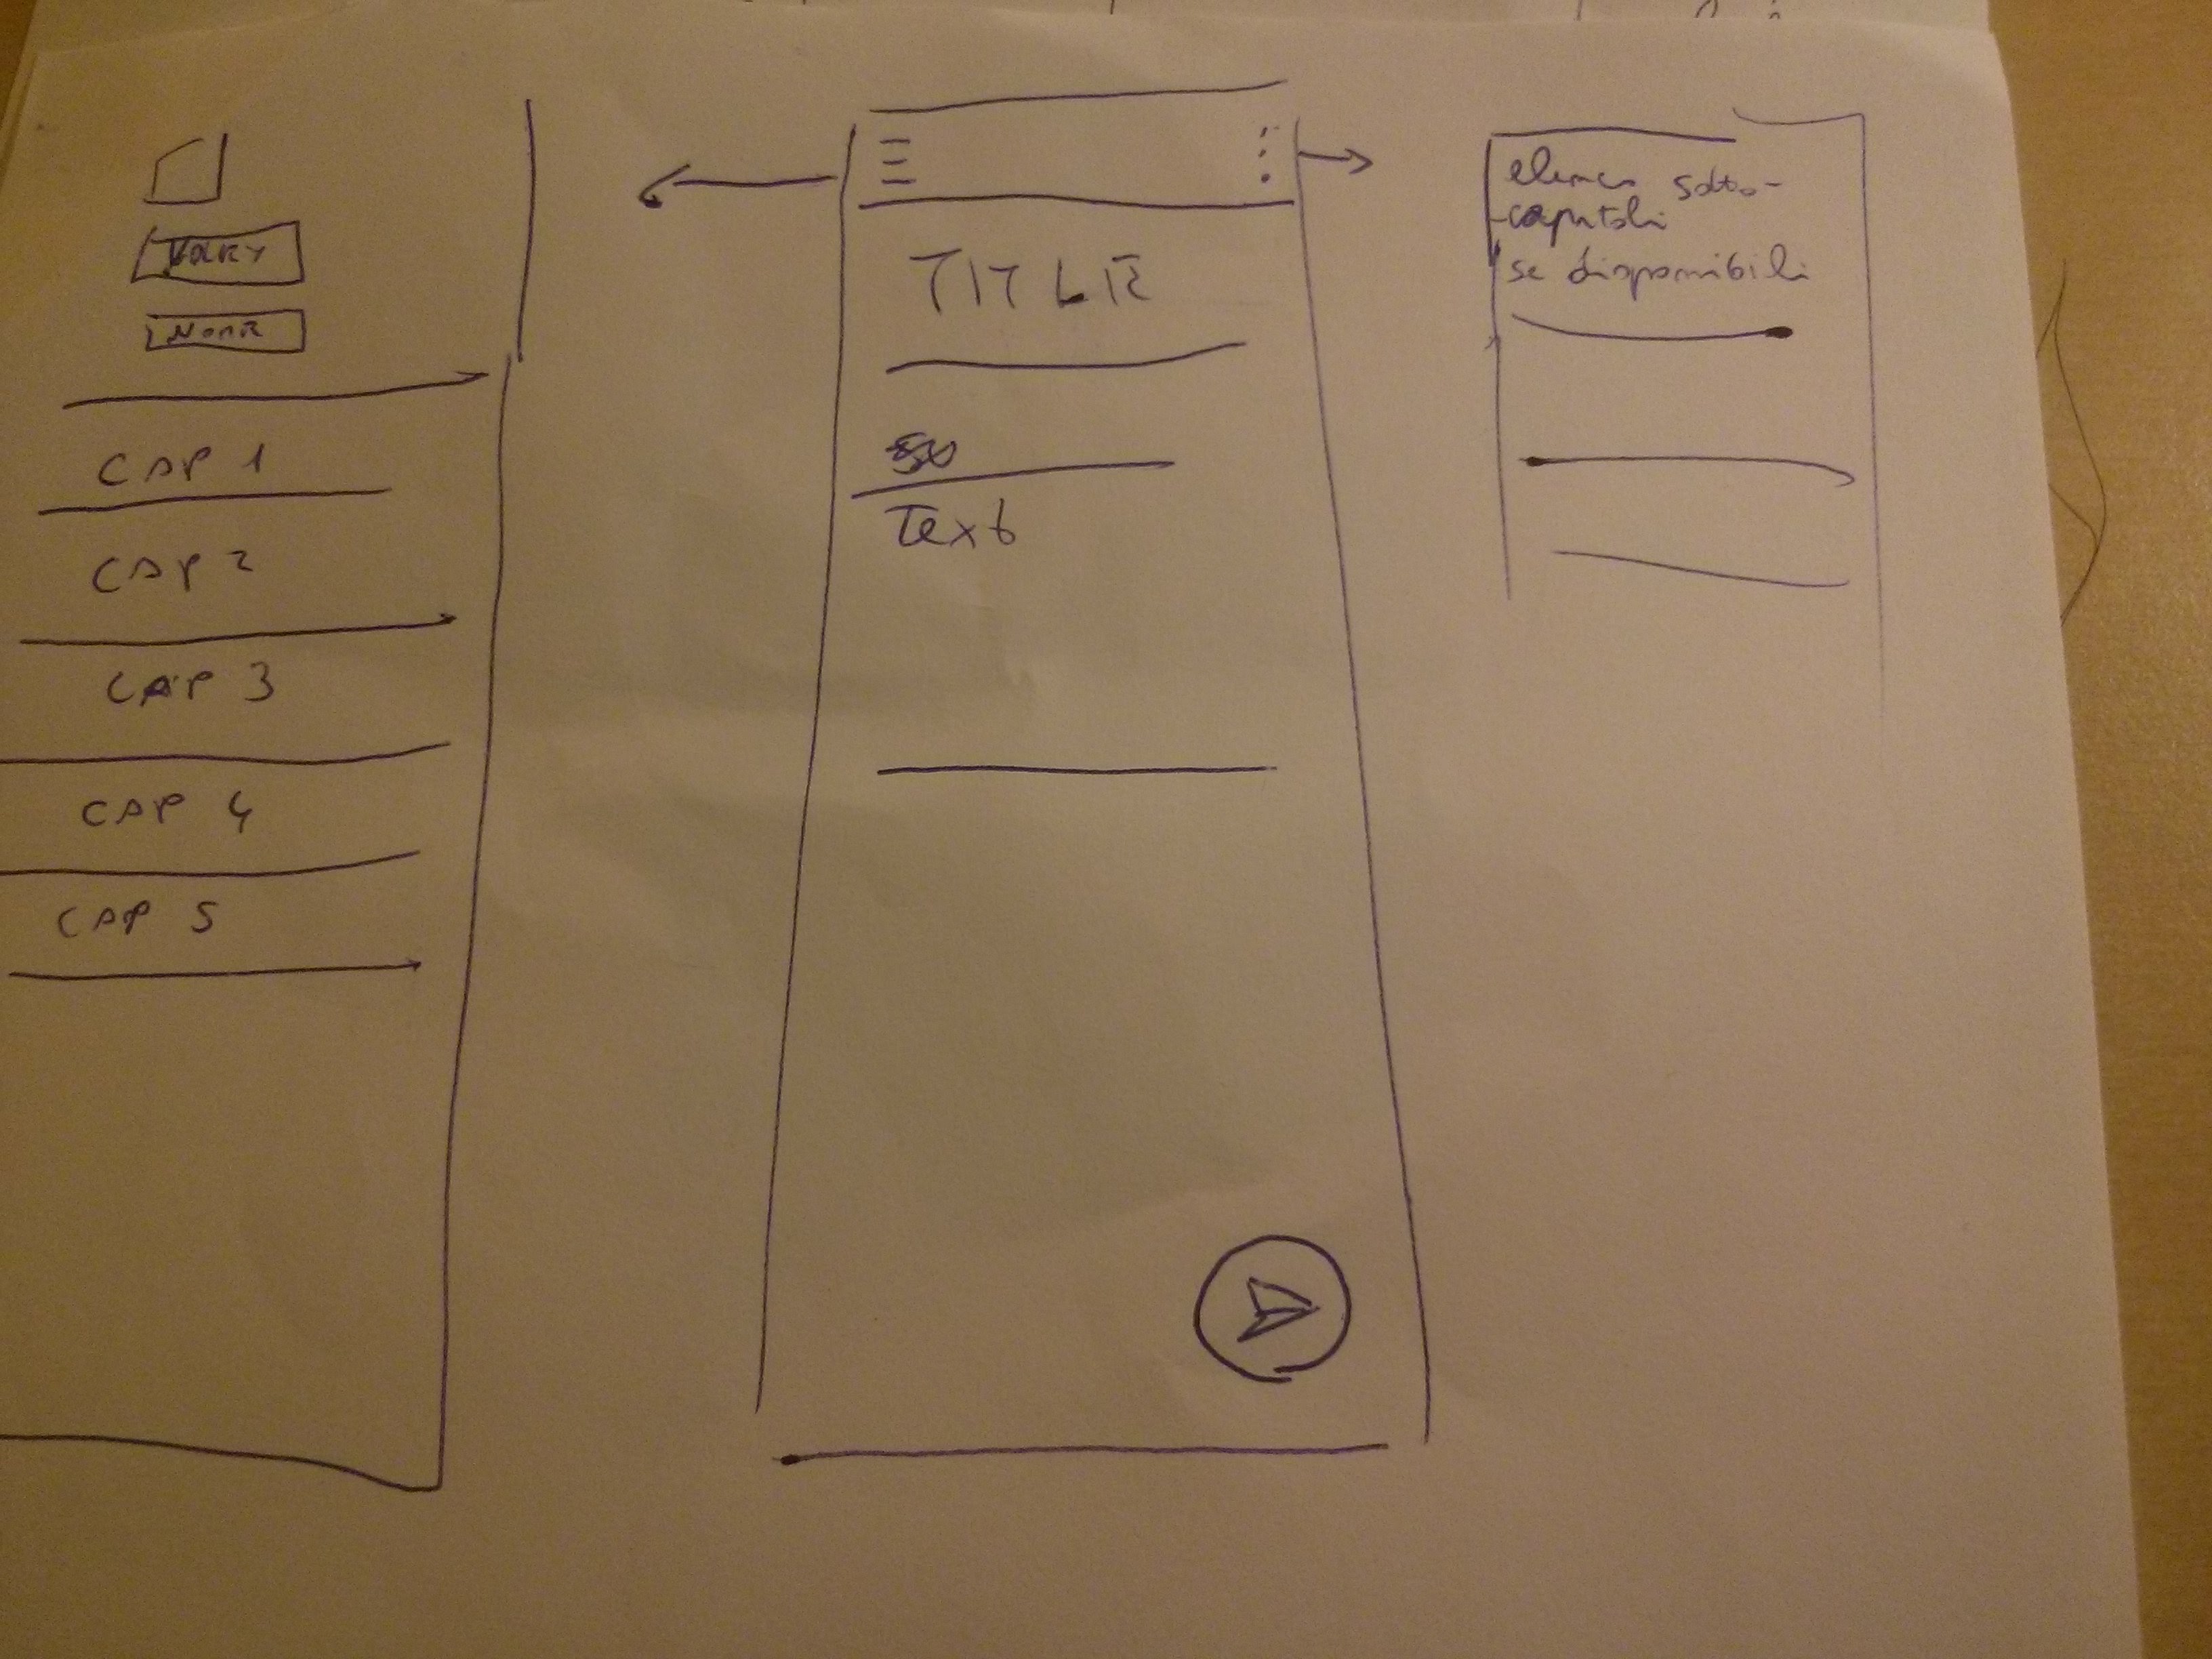 CAP 1
CAP 2
CAP 3
CAP 4
CAP 5
TITLE
Text
elenco sotto-
capitoli
se disponibili